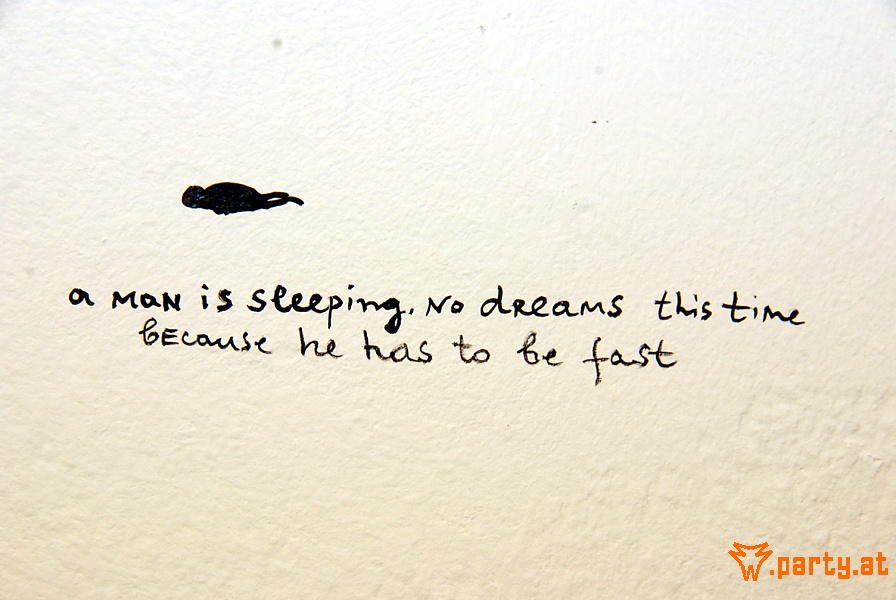 a MaN is sleeping. No dReams this time
bEcause he has to be fast
W.party.at